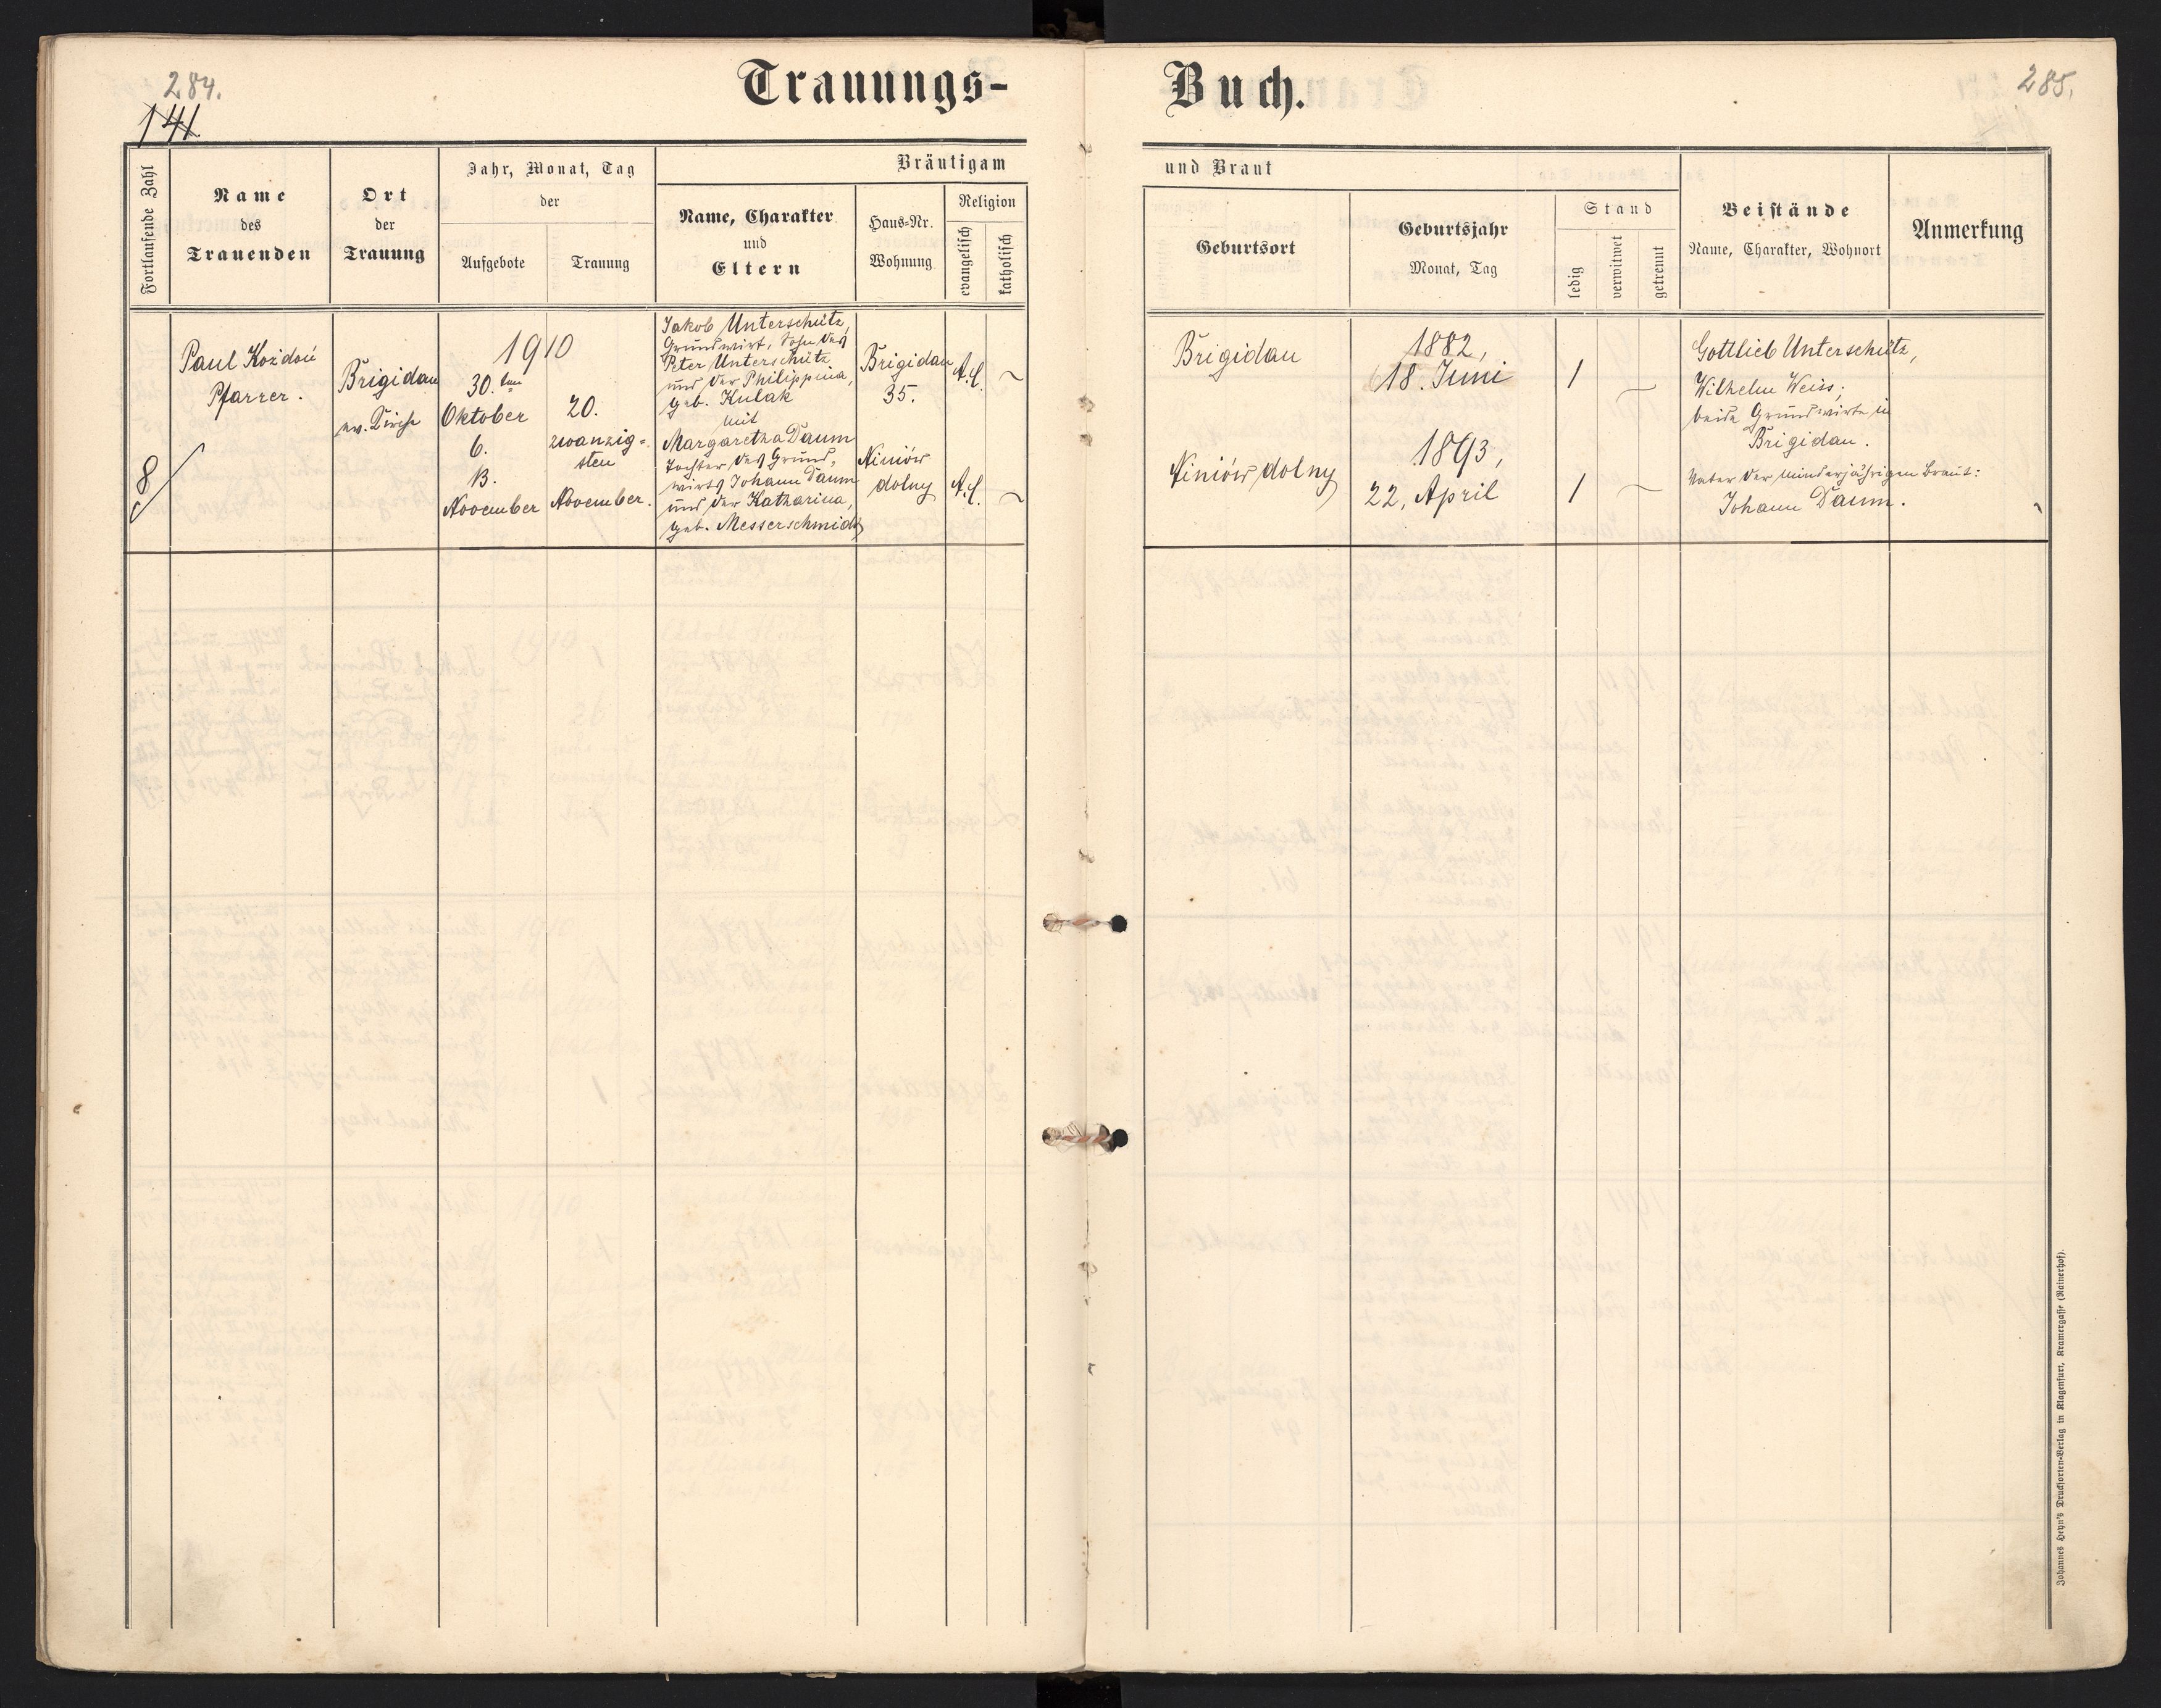 284.
141
Trauungs-
Buch.
285.
Fortlaufende Zahl
Name
des
Trauenden
Ort
der
Trauung
Jahr, Monat, Tag
der
Aufgebote
Trauung
Bräutigam
Name, Charakter
und
Eltern
Haus-Nr.
Wohnung
Religion
evangelisch
katholisch
und Braut
Geburtsort
Geburtsjahr
Monat, Tag
Stand
ledig
verwitwet
getrennt
Beistände
Name, Charakter, Wohnort
Anmerkung
8
Paul Kożdoń
Pfarrer.
Brigidau
ev. Kirche
1910
30.ten
Oktober
6.
13.
November
20.
zwanzig-
sten
November.
Jakob Unterschütz,
Grundwirt, Sohn des
Peter Unterschütz
und der Philippina,
geb. Kulak
mit
Margaretha Daum
Tochter des Grund-
wirts Johann Daum
und der Katharina,
geb. Messerschmidt
Brigidau
35.
Niniów
dolny
A.C.
A.C.
Brigidau
Niniów dolny
1882,
18. Juni
1893,
22. April
1
1
Gottlieb Unterschütz,
Wilhelm Weiss,
beide Grundwirte in
Brigidau.
Vater der minderjährigen Braut:
Johann Daum.
Johannes Heyn's Drucksorten-Verlag in Klagenfurt, Kramergasse (Rainerhof).